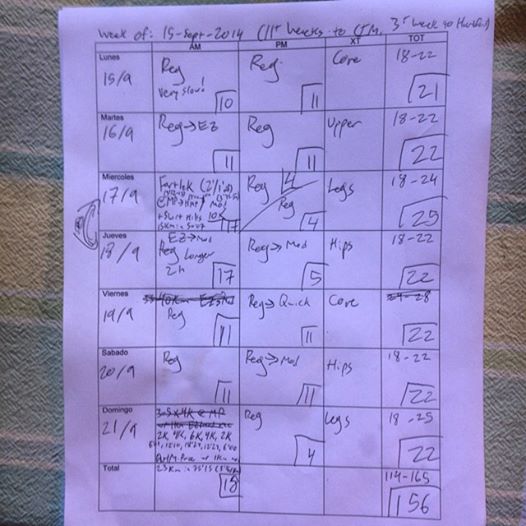 Week of: 15-Sept-2014 (11 weeks to CIM, 3 week to
AM PM XT TOT
Lunes
15/9 Reg Reg Core 18-22
very slow!
10 11 21
Martes
16/9 Reg→EZ Reg Upper 18-22
11 11 22
Miercoles
17/9 Fartlek Reg 4 Legs 18-24
Reg
+ Short Hills 10x
17 4 25
Jueves
18/9 EZ→Mod Reg→Mod Hips 18-22
Reg Longer
2h
17 5 22
Viernes
19/9 Reg Reg→Quick Core 24-28
11 11 22
Sabado
20/9 Reg Reg→Mod Hips 18-22
11 11 22
Domingo
21/9 Reg Legs 18-25
2K, 4K, 6K, 4K, 2K
4 22
Total
18 114-165
156